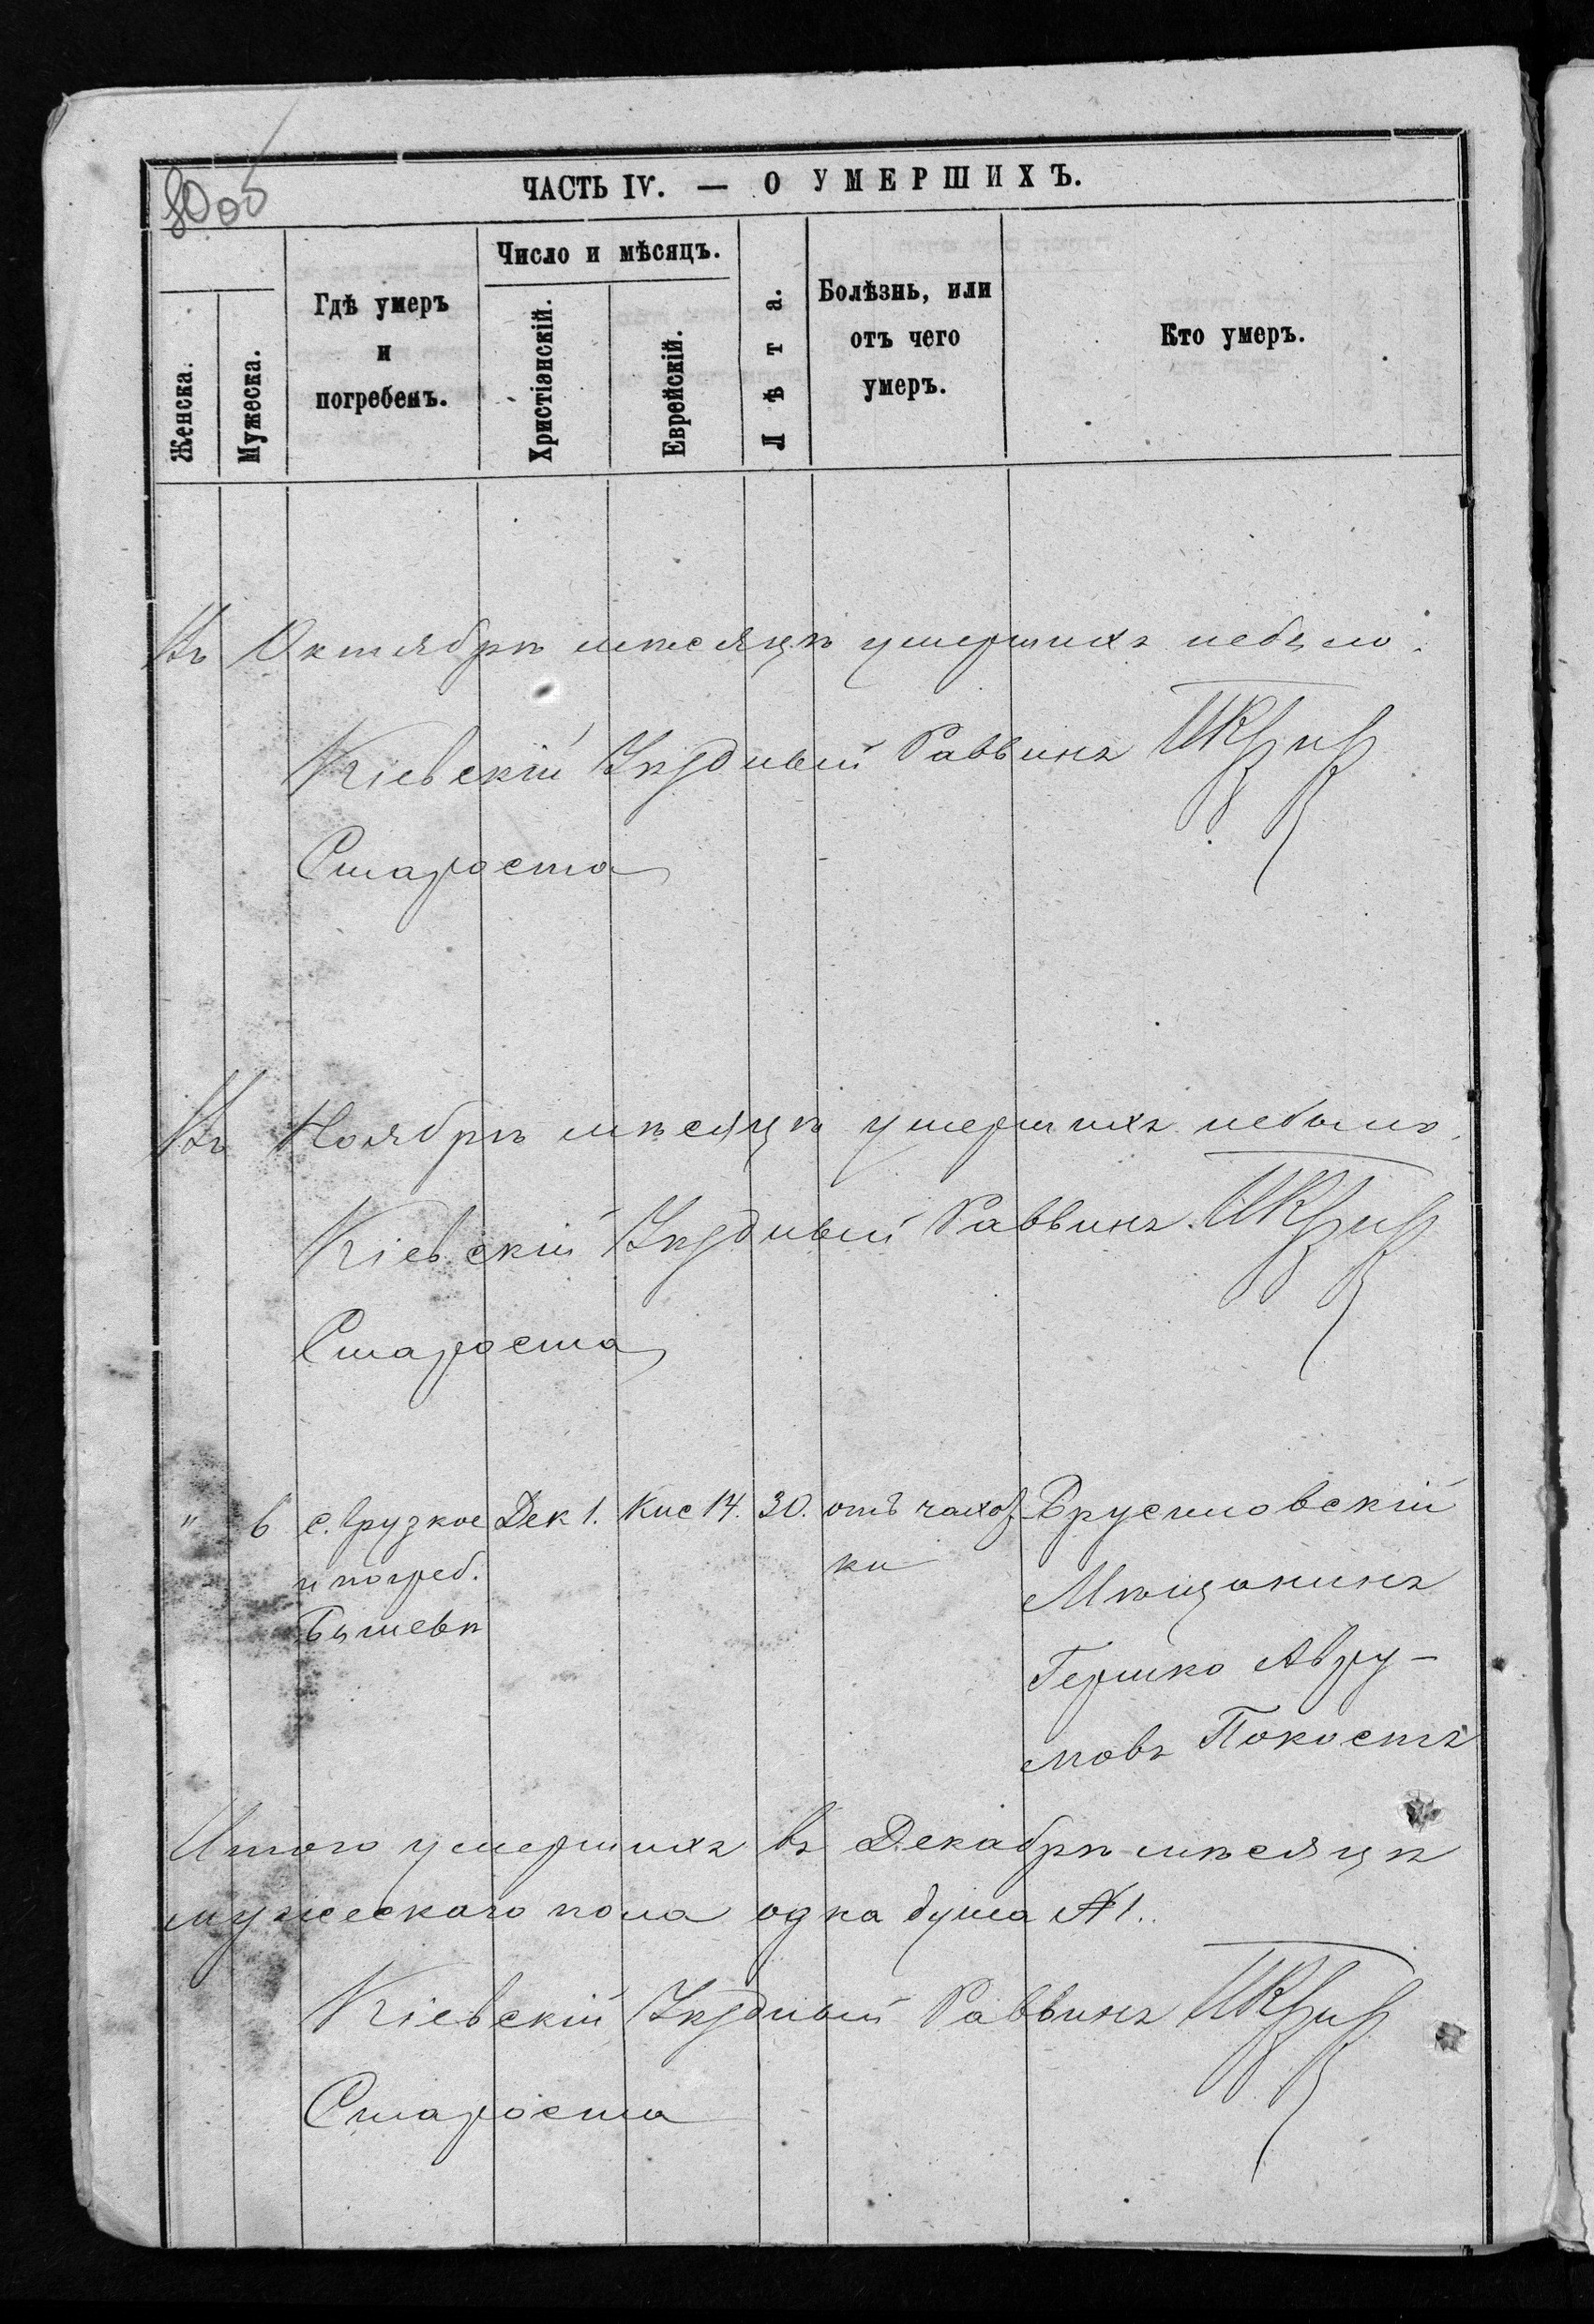 80об
ЧАСТЬ IV. — О УМЕРШИХЪ.
Женска.
Мужеска.
Гдѣ умеръ
и
погребенъ.
Число и мѣсяцъ.
Христіанскій.
Еврейскій.
Лѣта.
Болѣзнь, или
отъ чего
умеръ.
Кто умеръ.
Въ Октябрѣ мѣсяцѣ умершихъ небыло.
Кіевскій Уѣздный Раввинъ
Староста
Въ Ноябрѣ мѣсяцѣ умершихъ небыло.
Кіевскій Уѣздный Раввинъ
Староста
" 6 с. Грузкое Дек 1. Кис 14. 30. отъ чахот Брусиловскій
и погреб. ки Мѣщанинъ
Бышевѣ
Гершко Авру-
мовъ Покостъ
Итого умершихъ въ Декабрѣ мѣсяцѣ
мужескаго пола одна душа № 1.
Кіевскій Уѣздный Раввинъ
Староста